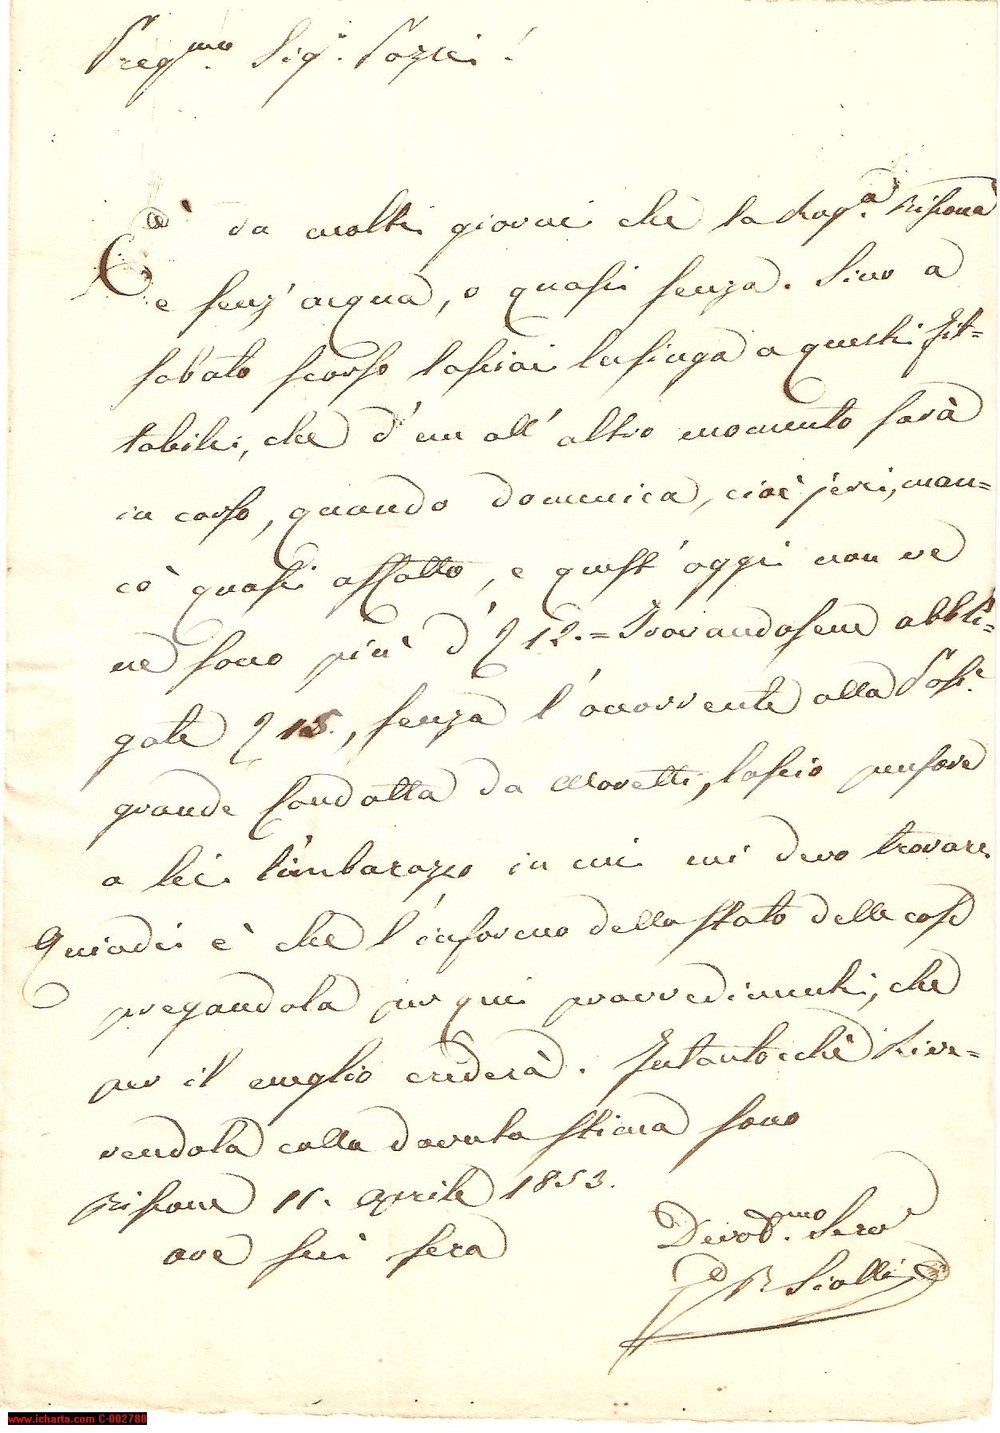 Preg.mo Sig.r Pozzi!
È da molti giorni che la Rog.a Risona
e senz'acqua, o quasi senza. Sino a
sabato scorso lasciai lusinga a questi fit=
tabili, che d'un all'altro momento sarà
in corso, quando domenica, cioè jeri, man=
cò quasi affatto, e quest'oggi non ve
ne sono più d' 12.= Trovandosene obbli=
gate 15., senza l'occorrente alla
grande condotta da Moretti, lascio pensare
a lei l'imbarazzo in cui mi devo trovare.
Quindi è che l'informo dello stato delle cose
pregandola per quei provvedimenti, che
per il meglio crederà. Intantocchè River=
rendola colla dovuta stima sono
11. Aprile 1853.
ore sei sera
Devot.mo Serv.
www.icharta.com C-002786